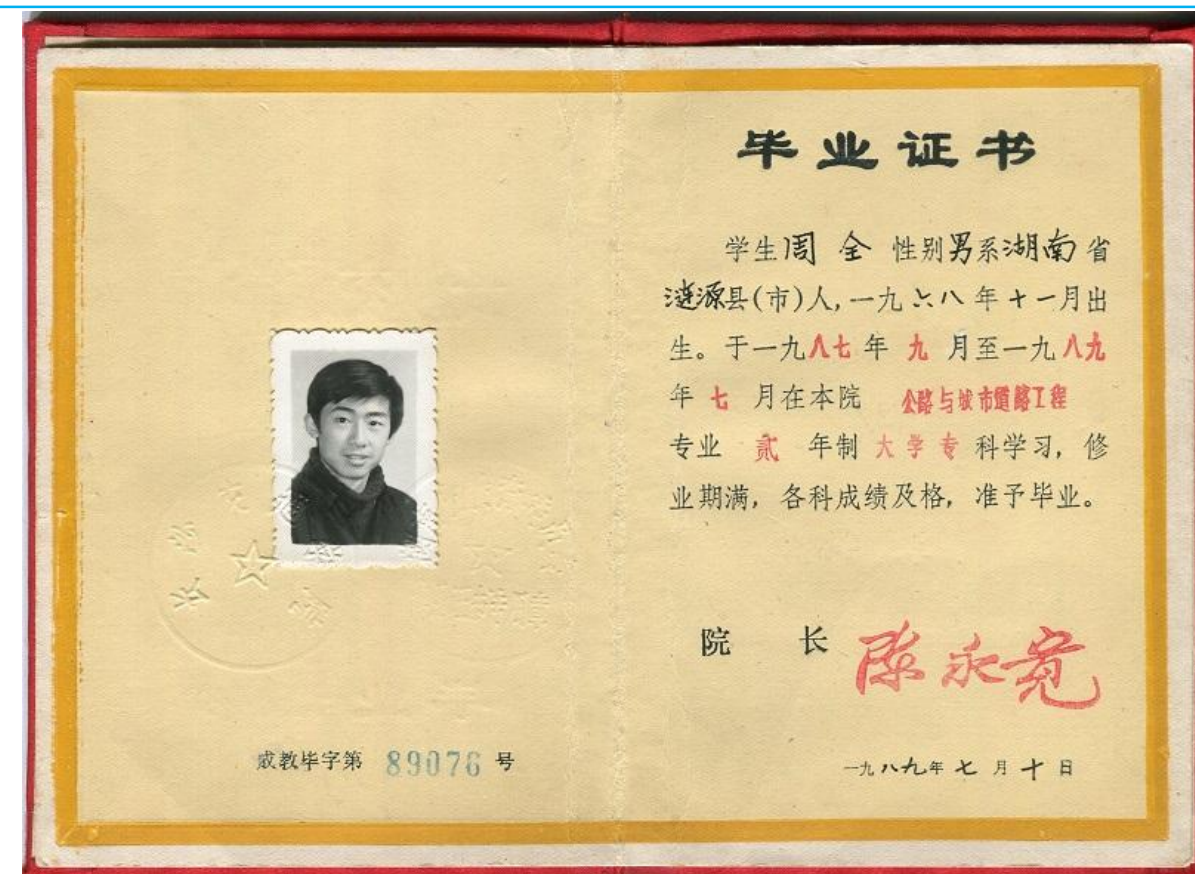 毕业证书
学生周全 性别男系湖南省
涟源县(市)人,一九六八年十一月出
生。于一九八七年九月至一九八九
年七月在本院 公路与城市道路工程
专业 贰 年制大学专科学习, 修
业期满, 各科成绩及格, 准予毕业。
院 长 陈永宽
一九八九年七月十日
成教毕字第 89076 号